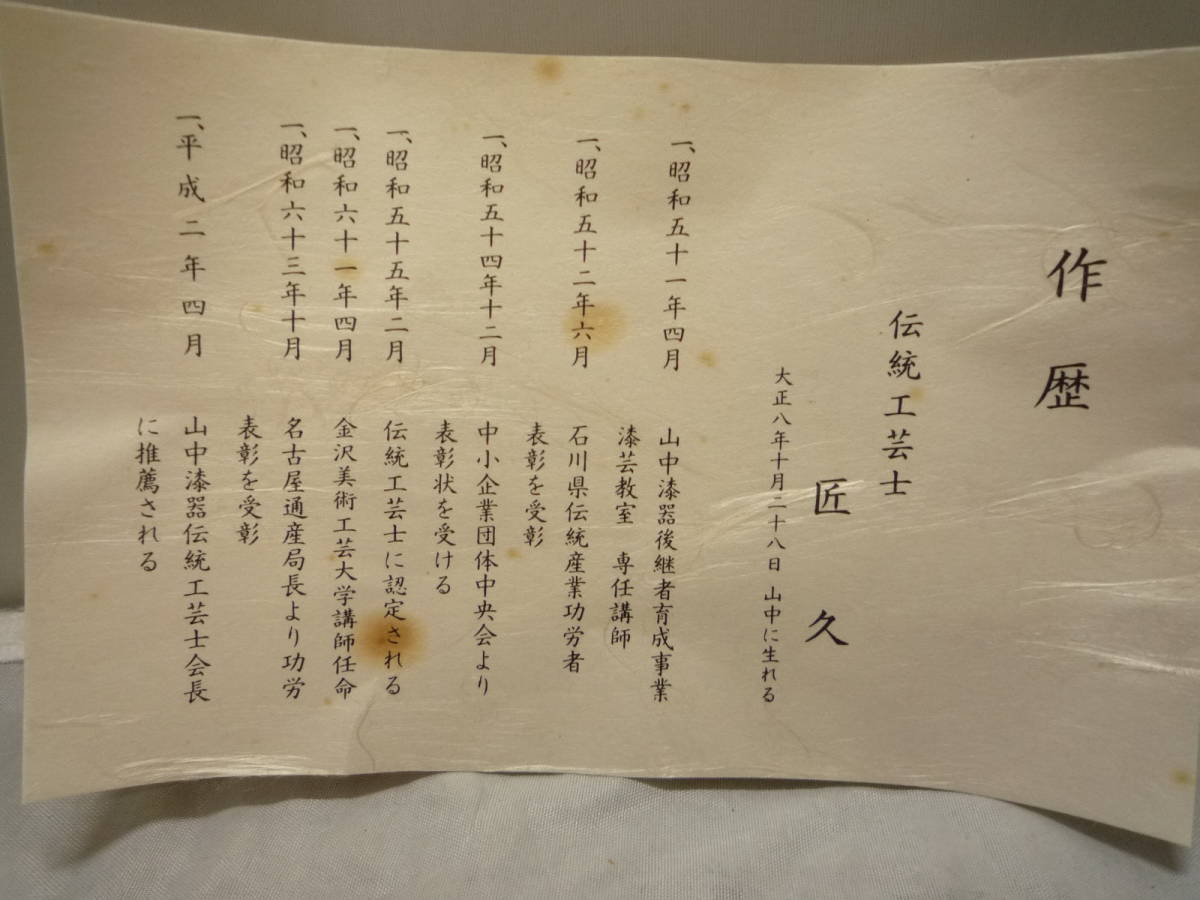 作歴
伝統工芸士
匠久
大正八年十月二十八日 山中に生れる
一、昭和五十一年四月 山中漆器後継者育成事業
漆芸教室 専任講師
一、昭和五十二年六月 石川県伝統産業功労者
表彰を受彰
一、昭和五十四年十二月 中小企業団体中央会より
表彰状を受ける
一、昭和五十五年二月 伝統工芸士に認定される
一、昭和六十一年四月 金沢美術工芸大学講師任命
一、昭和六十三年十月 名古屋通産局長より功労
表彰を受彰
一、平成二年四月 山中漆器伝統工芸士会長
に推薦される